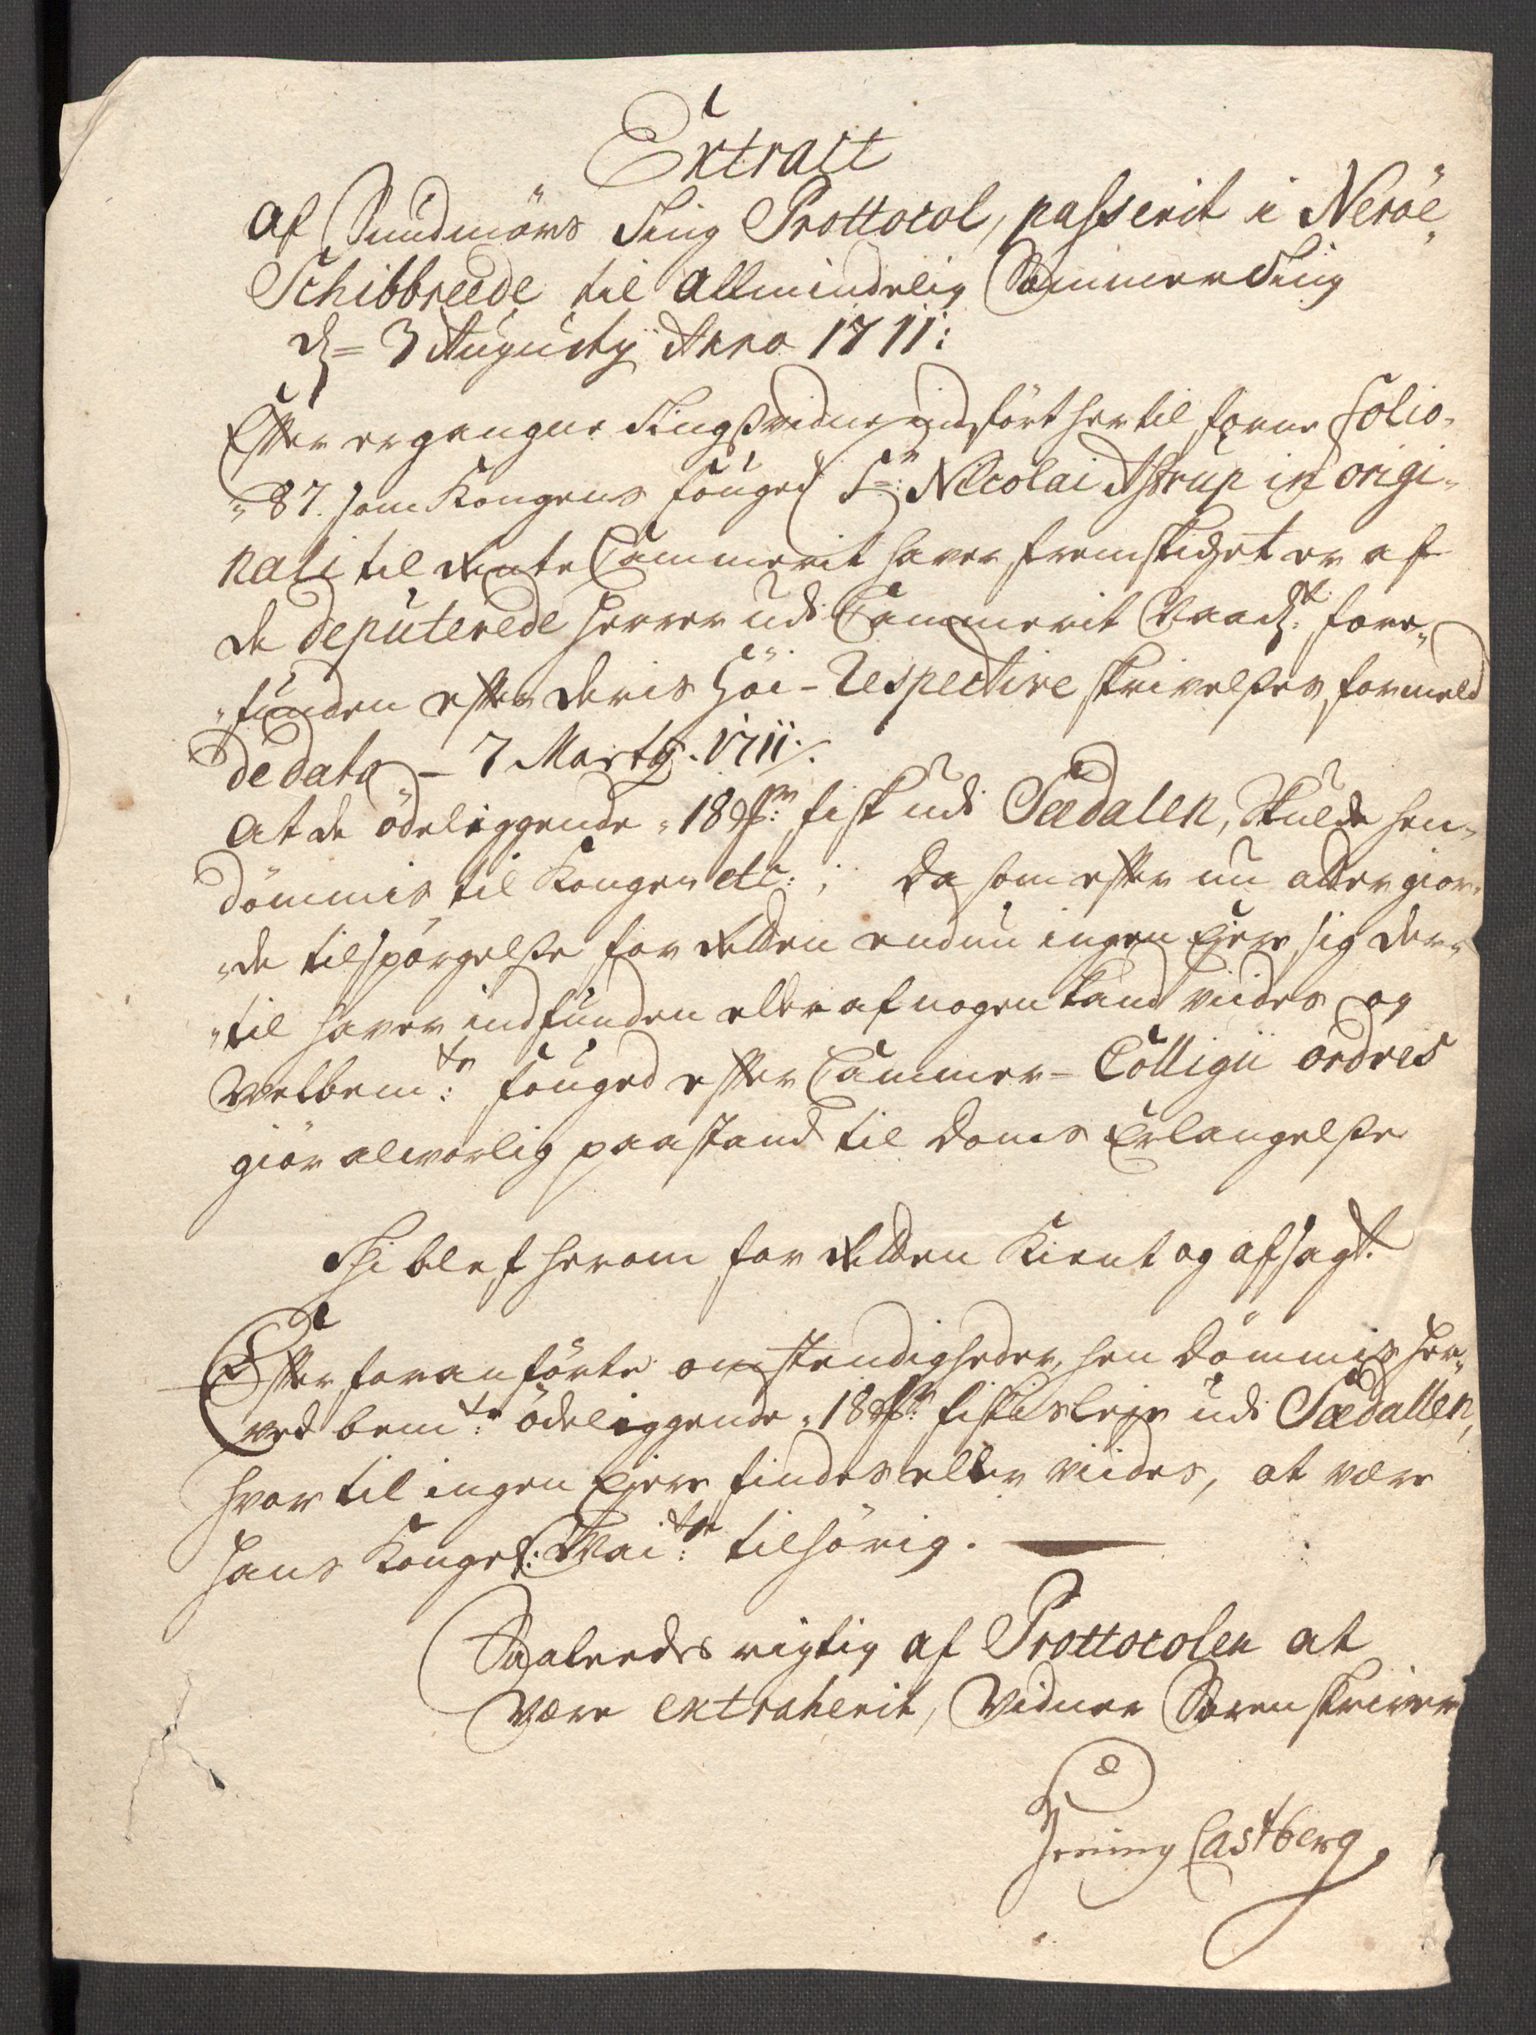 Extract
af Sundmörs Ting Prottocol, passerit i Neröe
Schibbreede til Allmindelig SommerTing
d= 3 Augusty Anno 1711:
Efter ergangne Tingsvidne indfört her til forne Folio
87. som Kongens Fouged Sr: Nicolai Astrup in origi-
nali til Rente Cammerit haver fremskicket er af
de deputerede Herrer udi Cammerit Raads: fore-
funden efter deris Höi-Respective skrivelses formeld
de dato - 7 Marty. 1711.
At de ödeliggende 18 fisk udi Sædalen, skulde hen-
dömmis til Kongen etc: ; Da som efter nu atter gior-
de tilspörgelse for Retten endnu ingen Ejere sig der-
til haver indfunden eller af nogen kand viides og
velbemte: Fouged efter Cammer-Colligii ordres
giör alvorlig paastand til Doms Erlangelse
Thi blef herom for Retten Kient og afsagt.
Efter foranförte omstendigheder, hen dömmis her-
ved bemte: ödeliggende 18 fiskes leje udi Sædallen,
hvortil ingen Ejere findes eller viides, at være
Hans Kongel: Maits: tilhörig.
Saaleedes rigtig af Prottocolen at
være extraherit, Vidner Sorenskriver
Hening Castberg